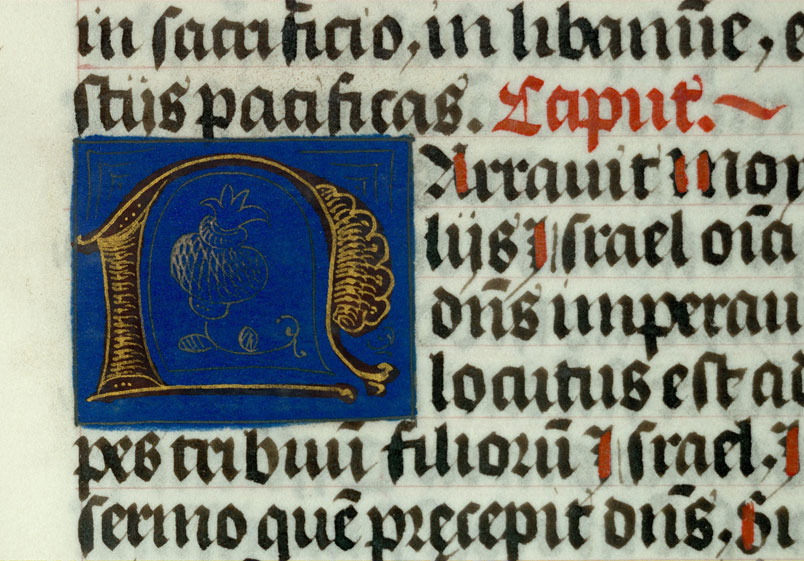 in sacrificio, in libamīe, e
stijs pacificas. Caput.
NArrauit Moy
lijs Israel oīa
dn̄s imperau
locutus est ad
pes tribuū filiorū Israel. I
sermo quē pręcepit dn̄s. Si